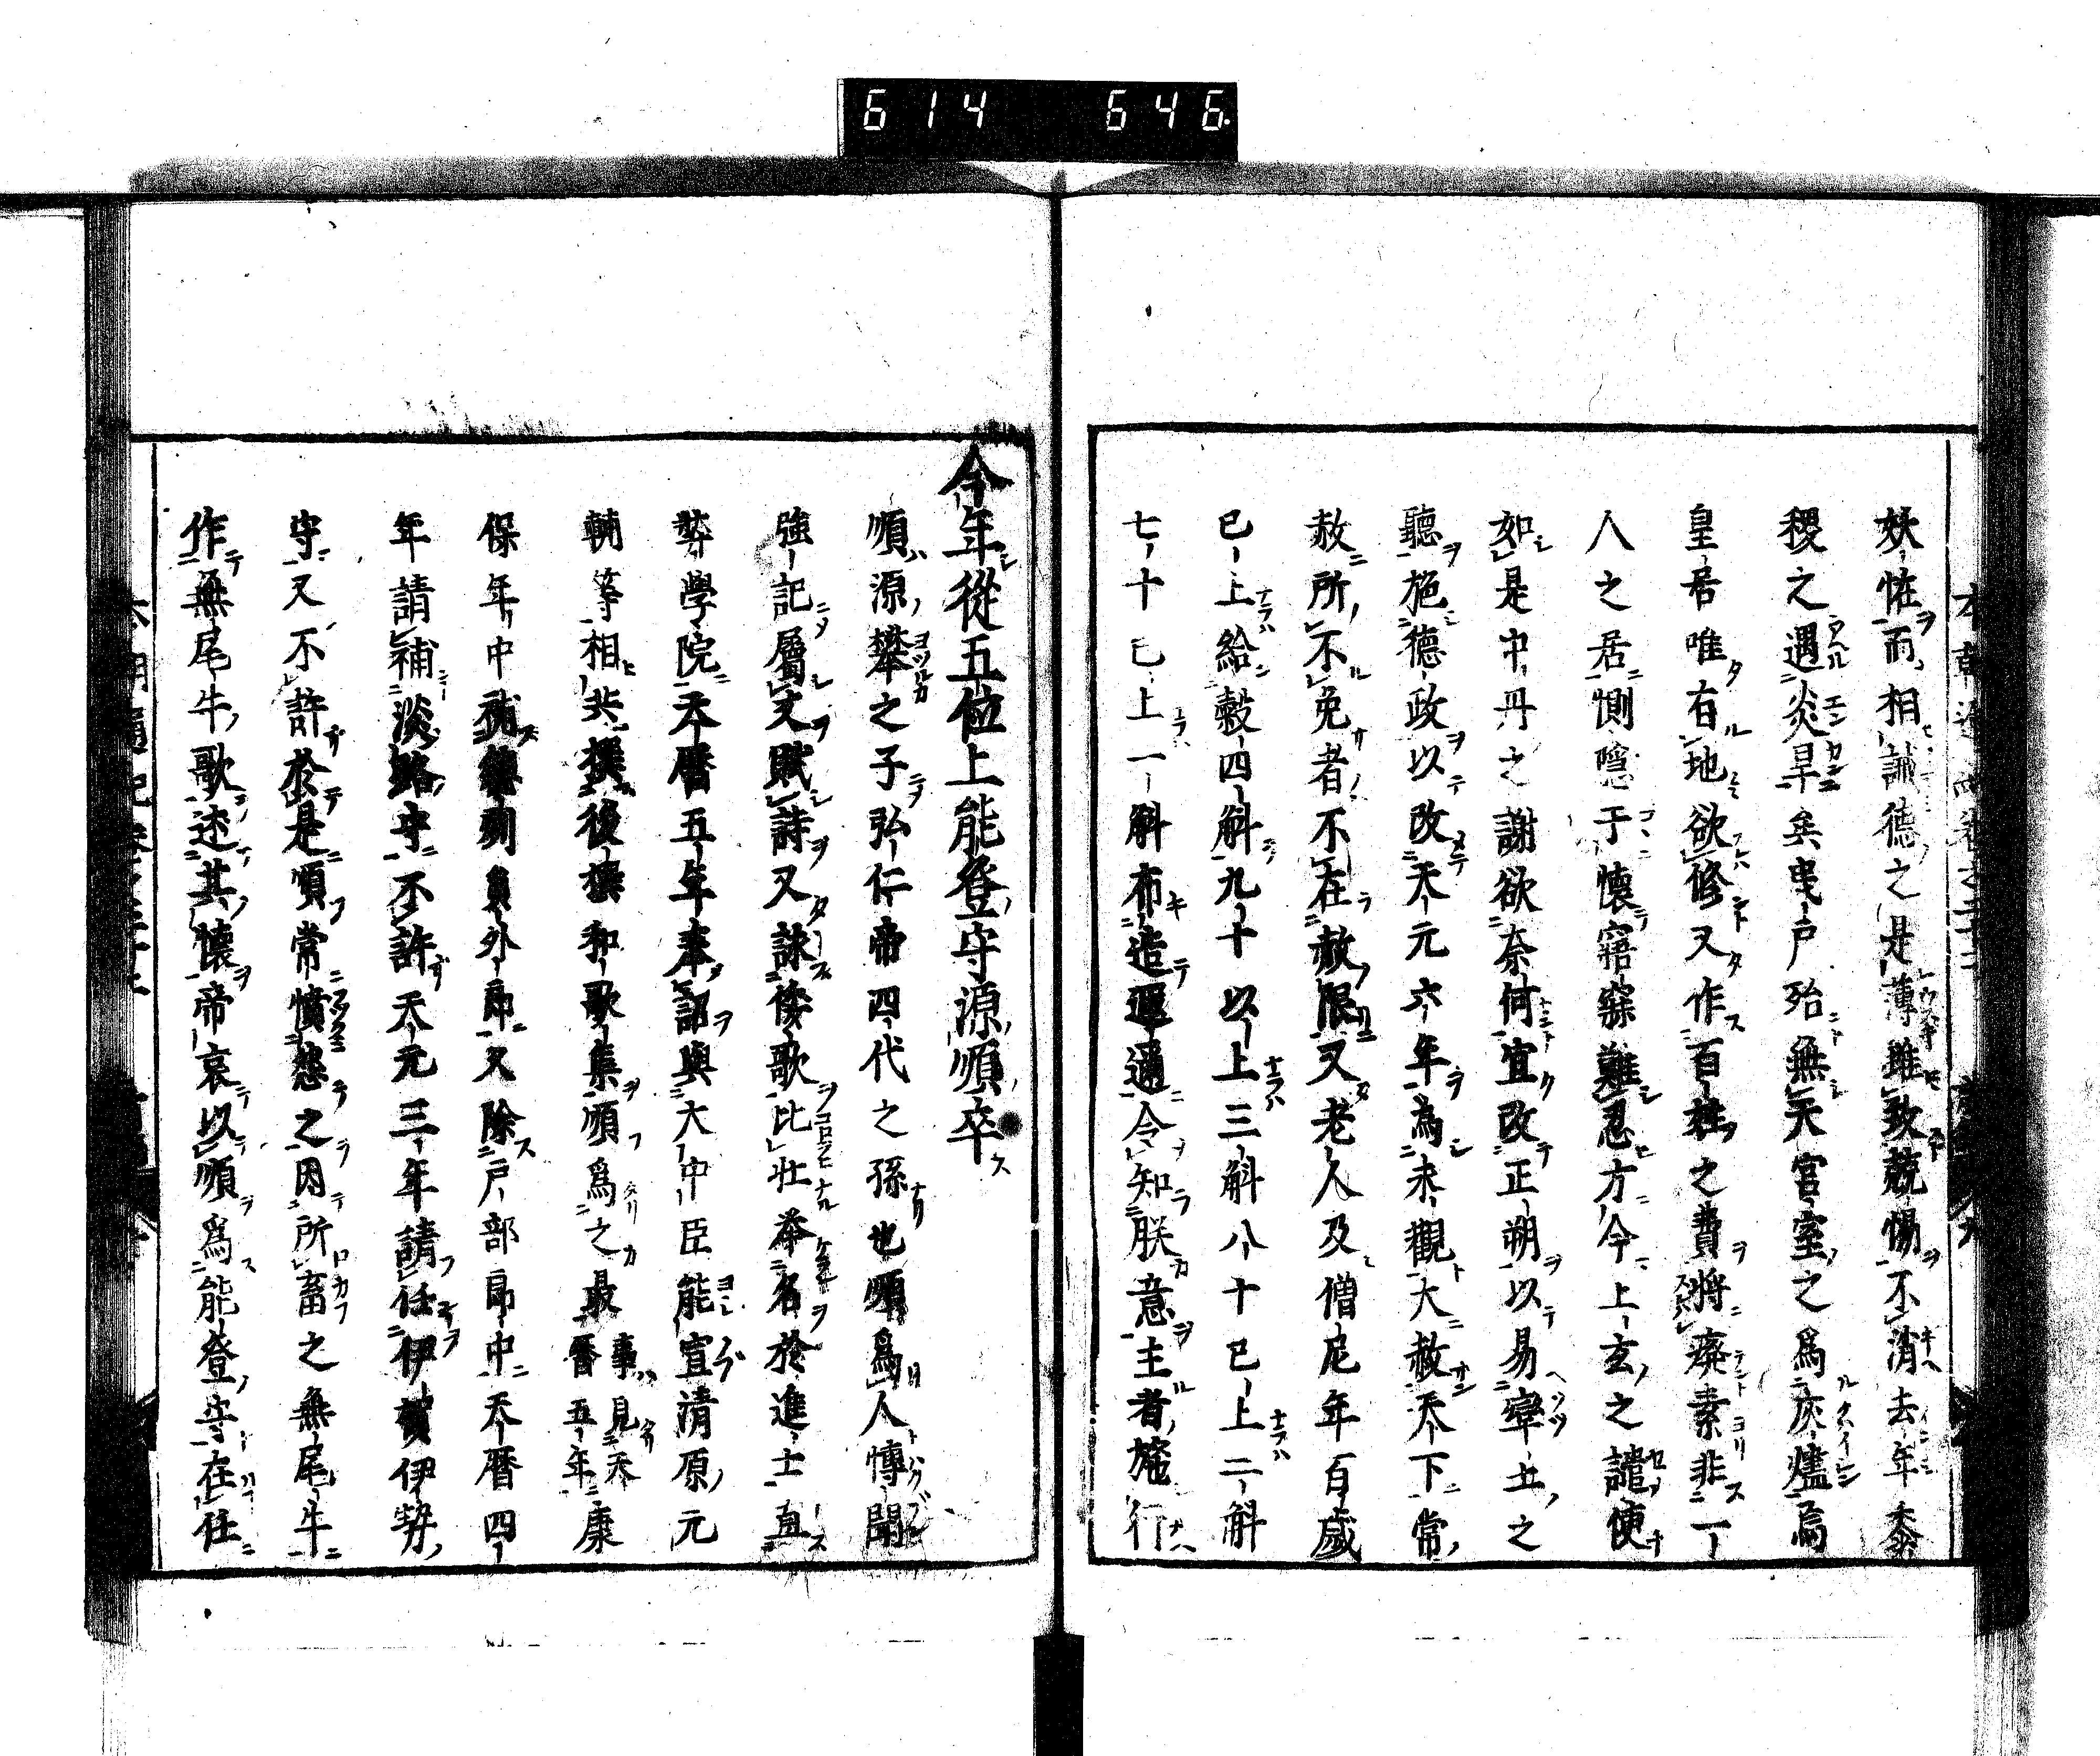 614 646
妖怪而相誡德之是薄雖致兢惕不消去年黍
稷之遇炎旱矣曳戸殆無天宮室之爲灰燼焉
皇居唯有地欲修又作百柱之費將療素非一
人之居惻隱于懷寤寐難忍方今上玄之譴使
如是中丹之謝欲奈何宜改正朔以易率土之
聽施德政以改天元六年為永觀大赦天下常
赦所不免者不在赦限又老人及僧尼年百歲
已上給穀四斛九十以上三斛八十已上二斛
七十已上一斛布造遐邇令知朕意主者施行
今年從五位上能登守源順卒
順源攀之子弘仁帝四代之孫也順爲人博聞
強記屬文賦詩又詠倭歌比壯舉名於進士直
弊學院天曆五年奉詔與大中臣能宣清原元
輔等相共撰後撰和歌集順爲之最事見天曆五年康
保年中補勘解員外郎又除戸部郎中天曆四
年請補淡路守不許天元三年請任伊賀伊勢
守又不許於是順常憤懣之因所畜之無尾牛
作無尾牛歌述其懷帝哀以順爲能登守在任